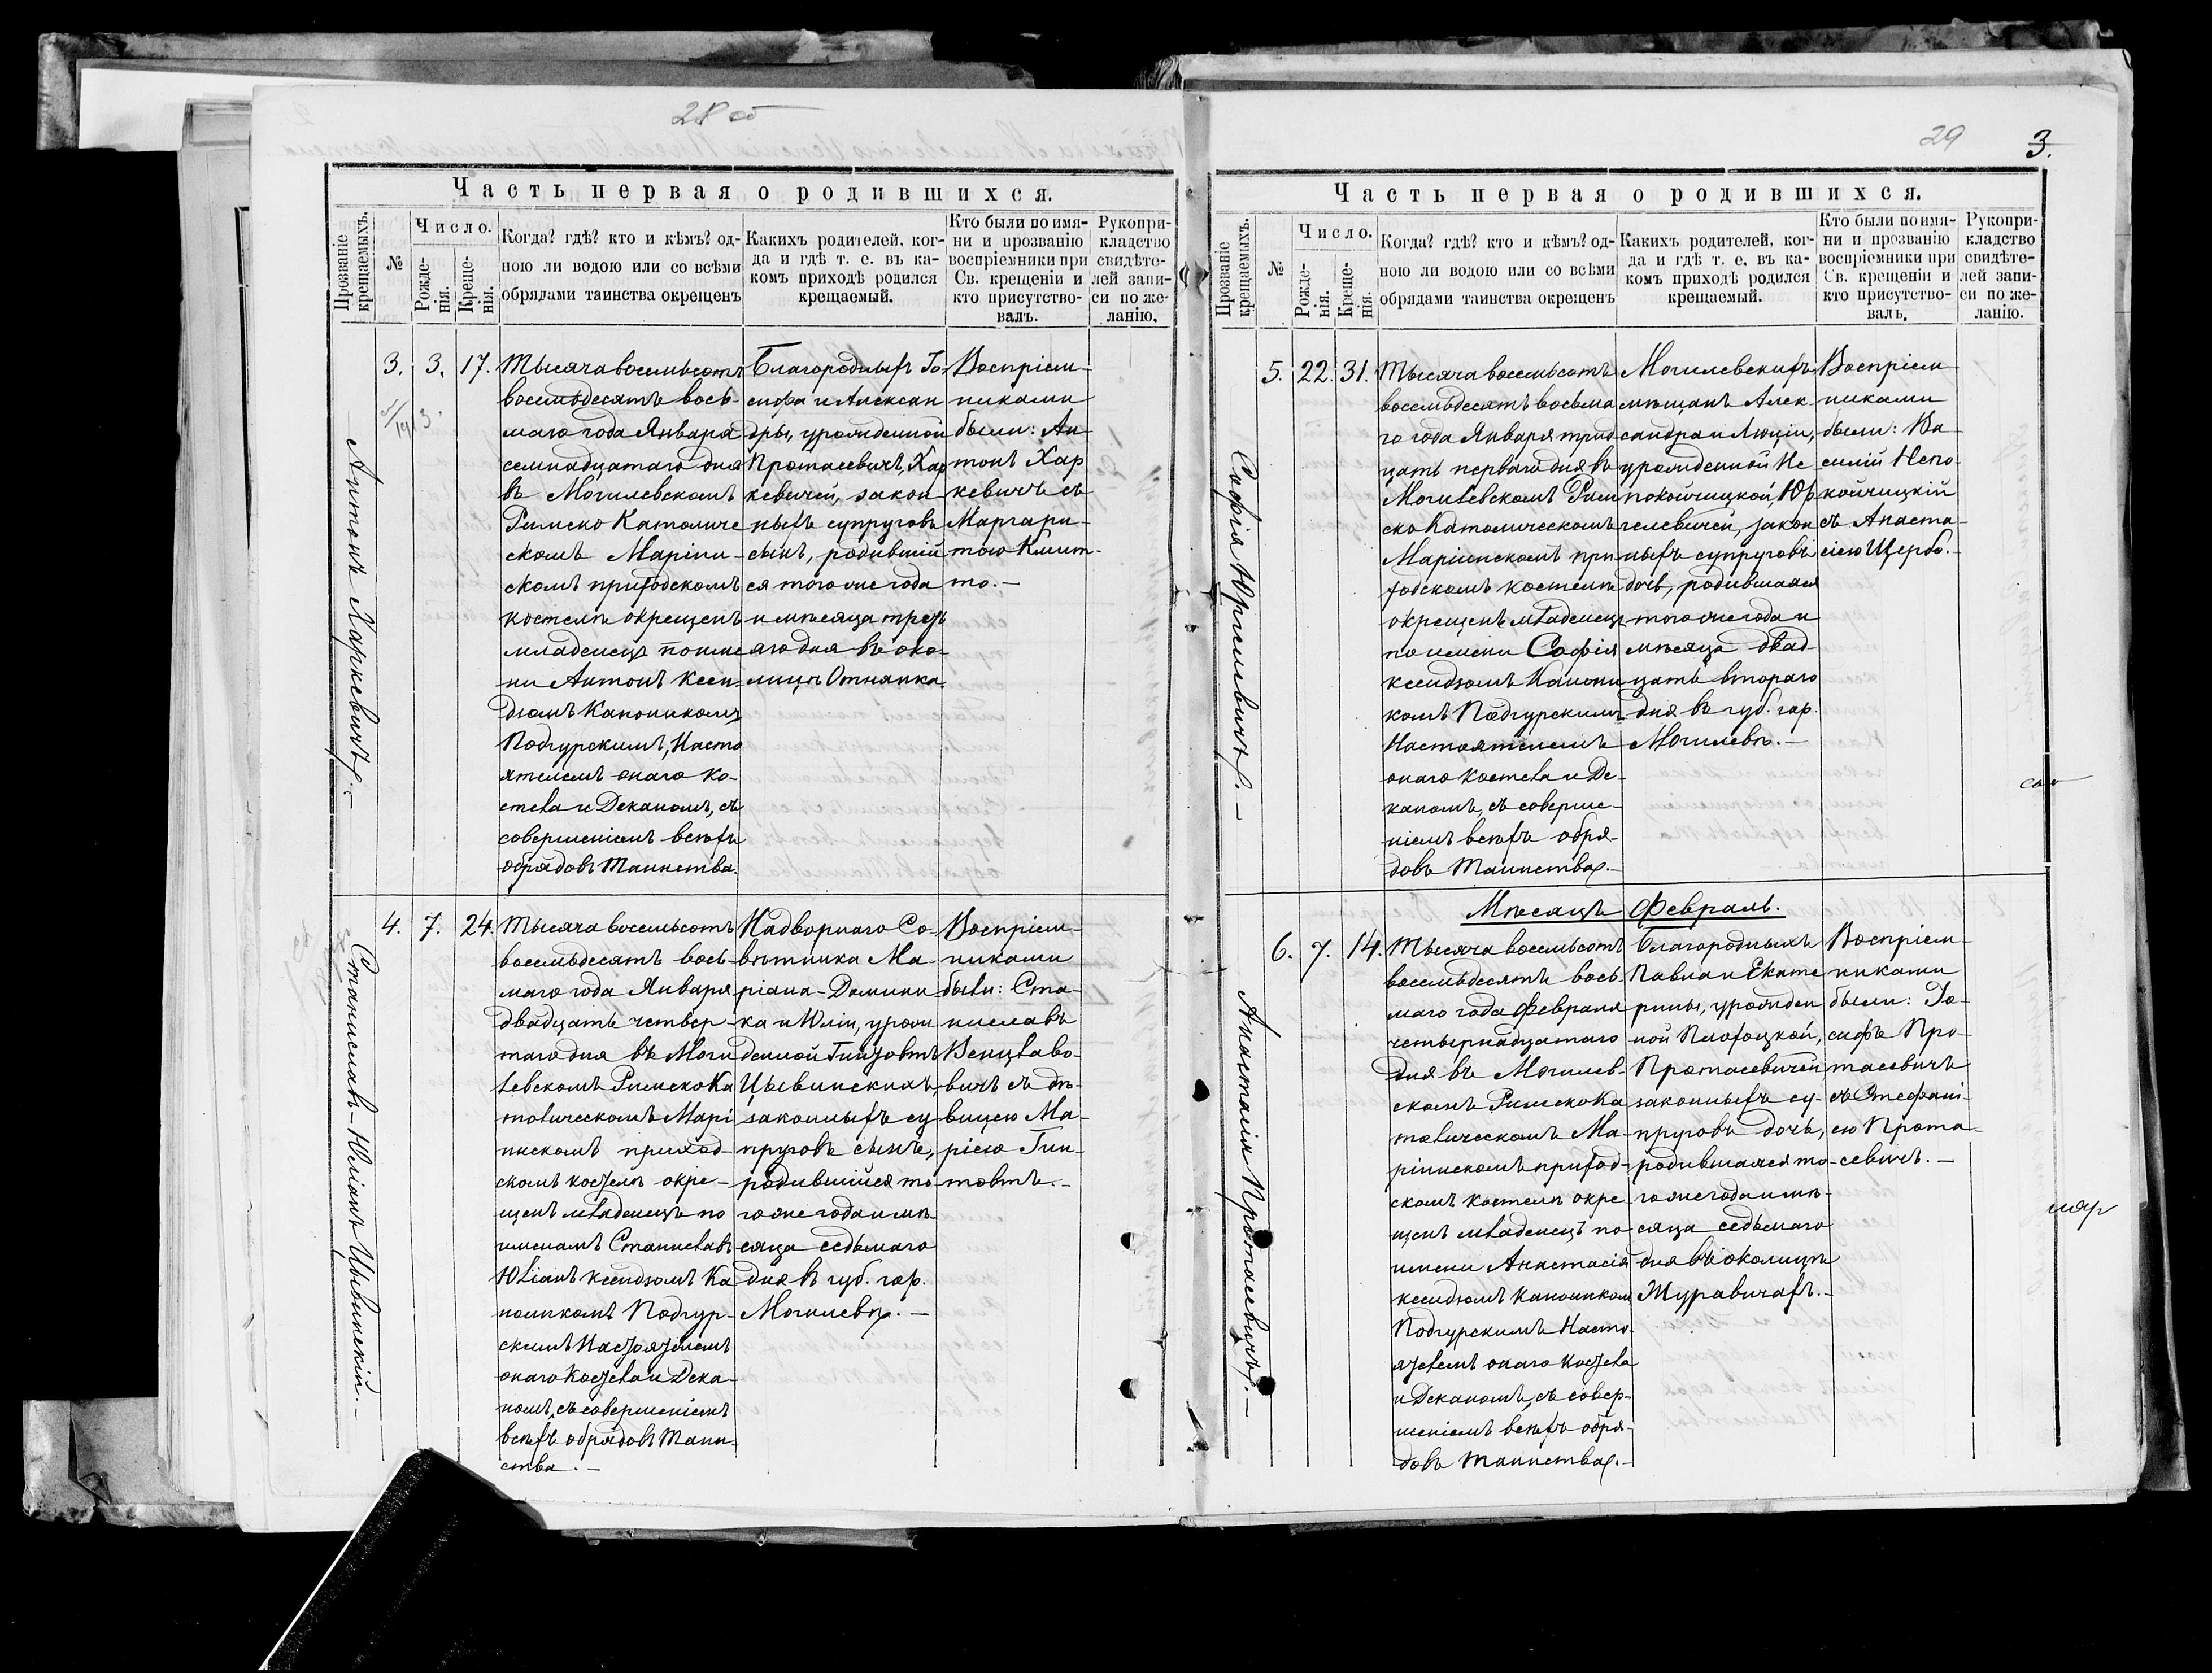 28 об
Часть первая о родившихся.
Прозваніе крещаемыхъ.
№
Число.
Рожде-
нія.
Креще-
нія.
Когда? гдѣ? кто и кѣмъ? од-
ною ли водою или со всѣми
обрядами таинства окрещенъ
Какихъ родителей, ког-
да и гдѣ т. е. въ ка-
комъ приходѣ родился
крещаемый.
Кто были по имя-
ни и прозванію
воспріемники при
Св. крещеніи и
кто присутство-
валъ.
Рукопри-
кладство
свидѣте-
лей запи-
си по же-
ланію.
Антонъ Харкевичъ.-
3. 3. 17.
Тысяча восемьсотъ
восемьдесятъ вось-
маго года Января
семнадцатаго дня
въ Могилевскомъ
Римско Католиче
скомъ Маріин-
скомъ приходскомъ
костелѣ окрещенъ
младенецъ по име
ни Антонъ ксен-
дзомъ Каноникомъ
Подгурскимъ, Насто
ятелемъ онаго ко-
стела и Деканомъ, съ
совершеніемъ всѣхъ
обрядовъ Таинства.
Благородныхъ Іо-
сифа и Алексан
дры, урожденной
Протасевичъ, Хар
кевичей, закон-
ныхъ супруговъ
сынъ, родившій
ся того же года
и мѣсяца треть
яго дня въ око-
лицѣ Отнянка.
Воспріем-
никами
были: Ан-
тонъ Хар
кевичъ съ
Маргари-
тою Клит-
то.-
Станиславъ-Юліанъ Цывинскій.-
4. 7. 24.
Тысяча восемьсотъ
восемьдесятъ вось-
маго года Января
двадцать четвер-
таго дня въ Моги
левскомъ Римско Ка
толическомъ Марі
инскомъ приход-
скомъ костелѣ окре-
щенъ младенецъ по
именамъ Станиславъ
Юліанъ ксендзомъ Ка
ноникомъ Подгур-
скимъ Настоятелемъ
онаго Костела и Дека-
номъ, съ совершеніемъ
всѣхъ обрядовъ Таин-
ства.-
Надворнаго Со-
вѣтника Ма-
ріана-Домини
ка и Юліи, урож
денной Гинтовтъ
Цывинскихъ,
законныхъ су
пруговъ сынъ,
родившійся то
го же года и мѣ-
сяца седьмаго
дня въ губ. гор.
Могилевѣ.-
Воспріем-
никами
были: Ста-
ниславъ
Венцлаво-
вичъ съ дѣ-
вицею Ма-
ріею Гин-
товтъ.-
29
3.
Часть первая о родившихся.
Прозваніе крещаемыхъ.
№
Число.
Рожде-
нія.
Креще-
нія.
Когда? гдѣ? кто и кѣмъ? од-
ною ли водою или со всѣми
обрядами таинства окрещенъ
Какихъ родителей, ког-
да и гдѣ т. е. въ ка-
комъ приходѣ родился
крещаемый.
Кто были по имя-
ни и прозванію
воспріемники при
Св. крещеніи и
кто присутство-
валъ.
Рукопри-
кладство
свидѣте-
лей запи-
си по же-
ланію.
Софія Юргелевичъ.-
5. 22. 31.
Тысяча восемьсотъ
восемьдесятъ восьма
го года Января трид
цать перваго дня въ
Могилевскомъ Рим
ско Католическомъ
Маріинскомъ при
ходскомъ костелѣ
окрещенъ младенецъ
по имени Софія
ксендзомъ Канони
комъ Подгурскимъ
Настоятелемъ
онаго костела и Де-
каномъ, съ соверше-
ніемъ всѣхъ обря-
довъ Таинства.-
Могилевскихъ
мѣщанъ Алек-
сандра и Люціи,
урожденной Не
покойчицкой, Юр
гелевичей, закон
ныхъ супруговъ
дочь, родившаяся
того же года и
мѣсяца двад-
цать втораго
дня въ губ. гор.
Могилевѣ.-
Воспріем-
никами
были: Ва-
силій Непо-
койчицкій
съ Анаста-
сіею Щербо.-
Мѣсяцъ Февраль.
Анастасія Протасевичъ.-
6. 7. 14.
Тысяча восемьсотъ
восемьдесятъ вось-
маго года Февраля
четырнадцатаго
дня въ Могилев-
скомъ Римско Ка
толическомъ Ма-
ріинскомъ приход-
скомъ костелѣ окре
щенъ младенецъ по
имени Анастасія
ксендзомъ каноником
Подгурскимъ Насто-
ятелемъ онаго костела
и Деканомъ, съ совер-
шеніемъ всѣхъ обря-
довъ таинства.-
Благородныхъ
Павла и Екате
рины, урожден
ной Плохоцкой,
Протасевичей
законныхъ су-
пруговъ дочь,
родившаяся то-
го же года и мѣ-
сяца седьмаго
дня въ околицѣ
Журавичахъ.-
Воспріем-
никами
были: Іо-
сифъ Про-
тасевичъ
съ Стефані-
ею Прота-
севичъ.-